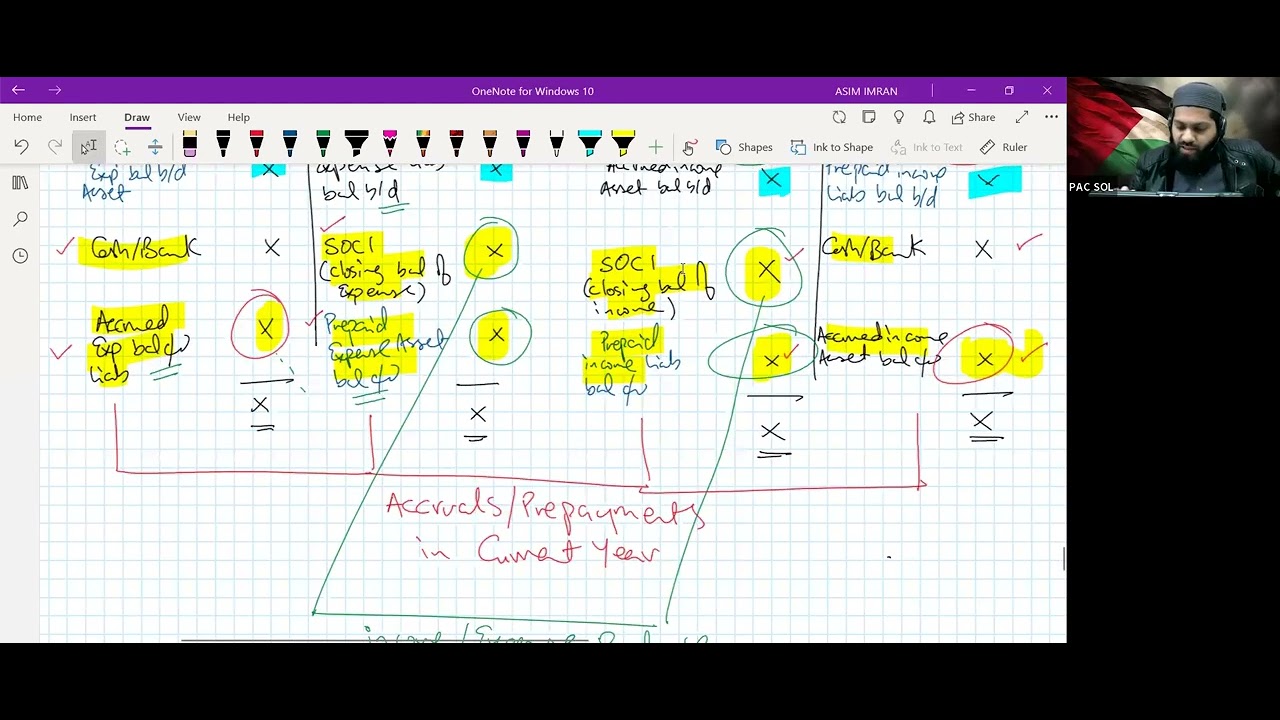 OneNote for Windows 10
ASIM IMRAN
Home
Insert
Draw
View
Help
Share
Shapes
Ink to Shape
Ink to Text
Ruler
PAC SOL
Exp bal b/d
Asset
X
bal b/d
X
Accrued income
Asset bal b/d
X
Prepaid income
Liabs bal b/d
X
Cash/Bank
X
SOCI
(closing bal of
Expense)
X
SOCI
(closing bal of
income)
X
Cash/Bank
X
Accrued
Exp bal c/d
Liabs
X
Prepaid
Expense Asset
bal c/d
X
Prepaid
income Liabs
bal c/d
X
Accrued income
Asset bal c/d
X
X
X
X
X
Accruals/Prepayments
in Current Year